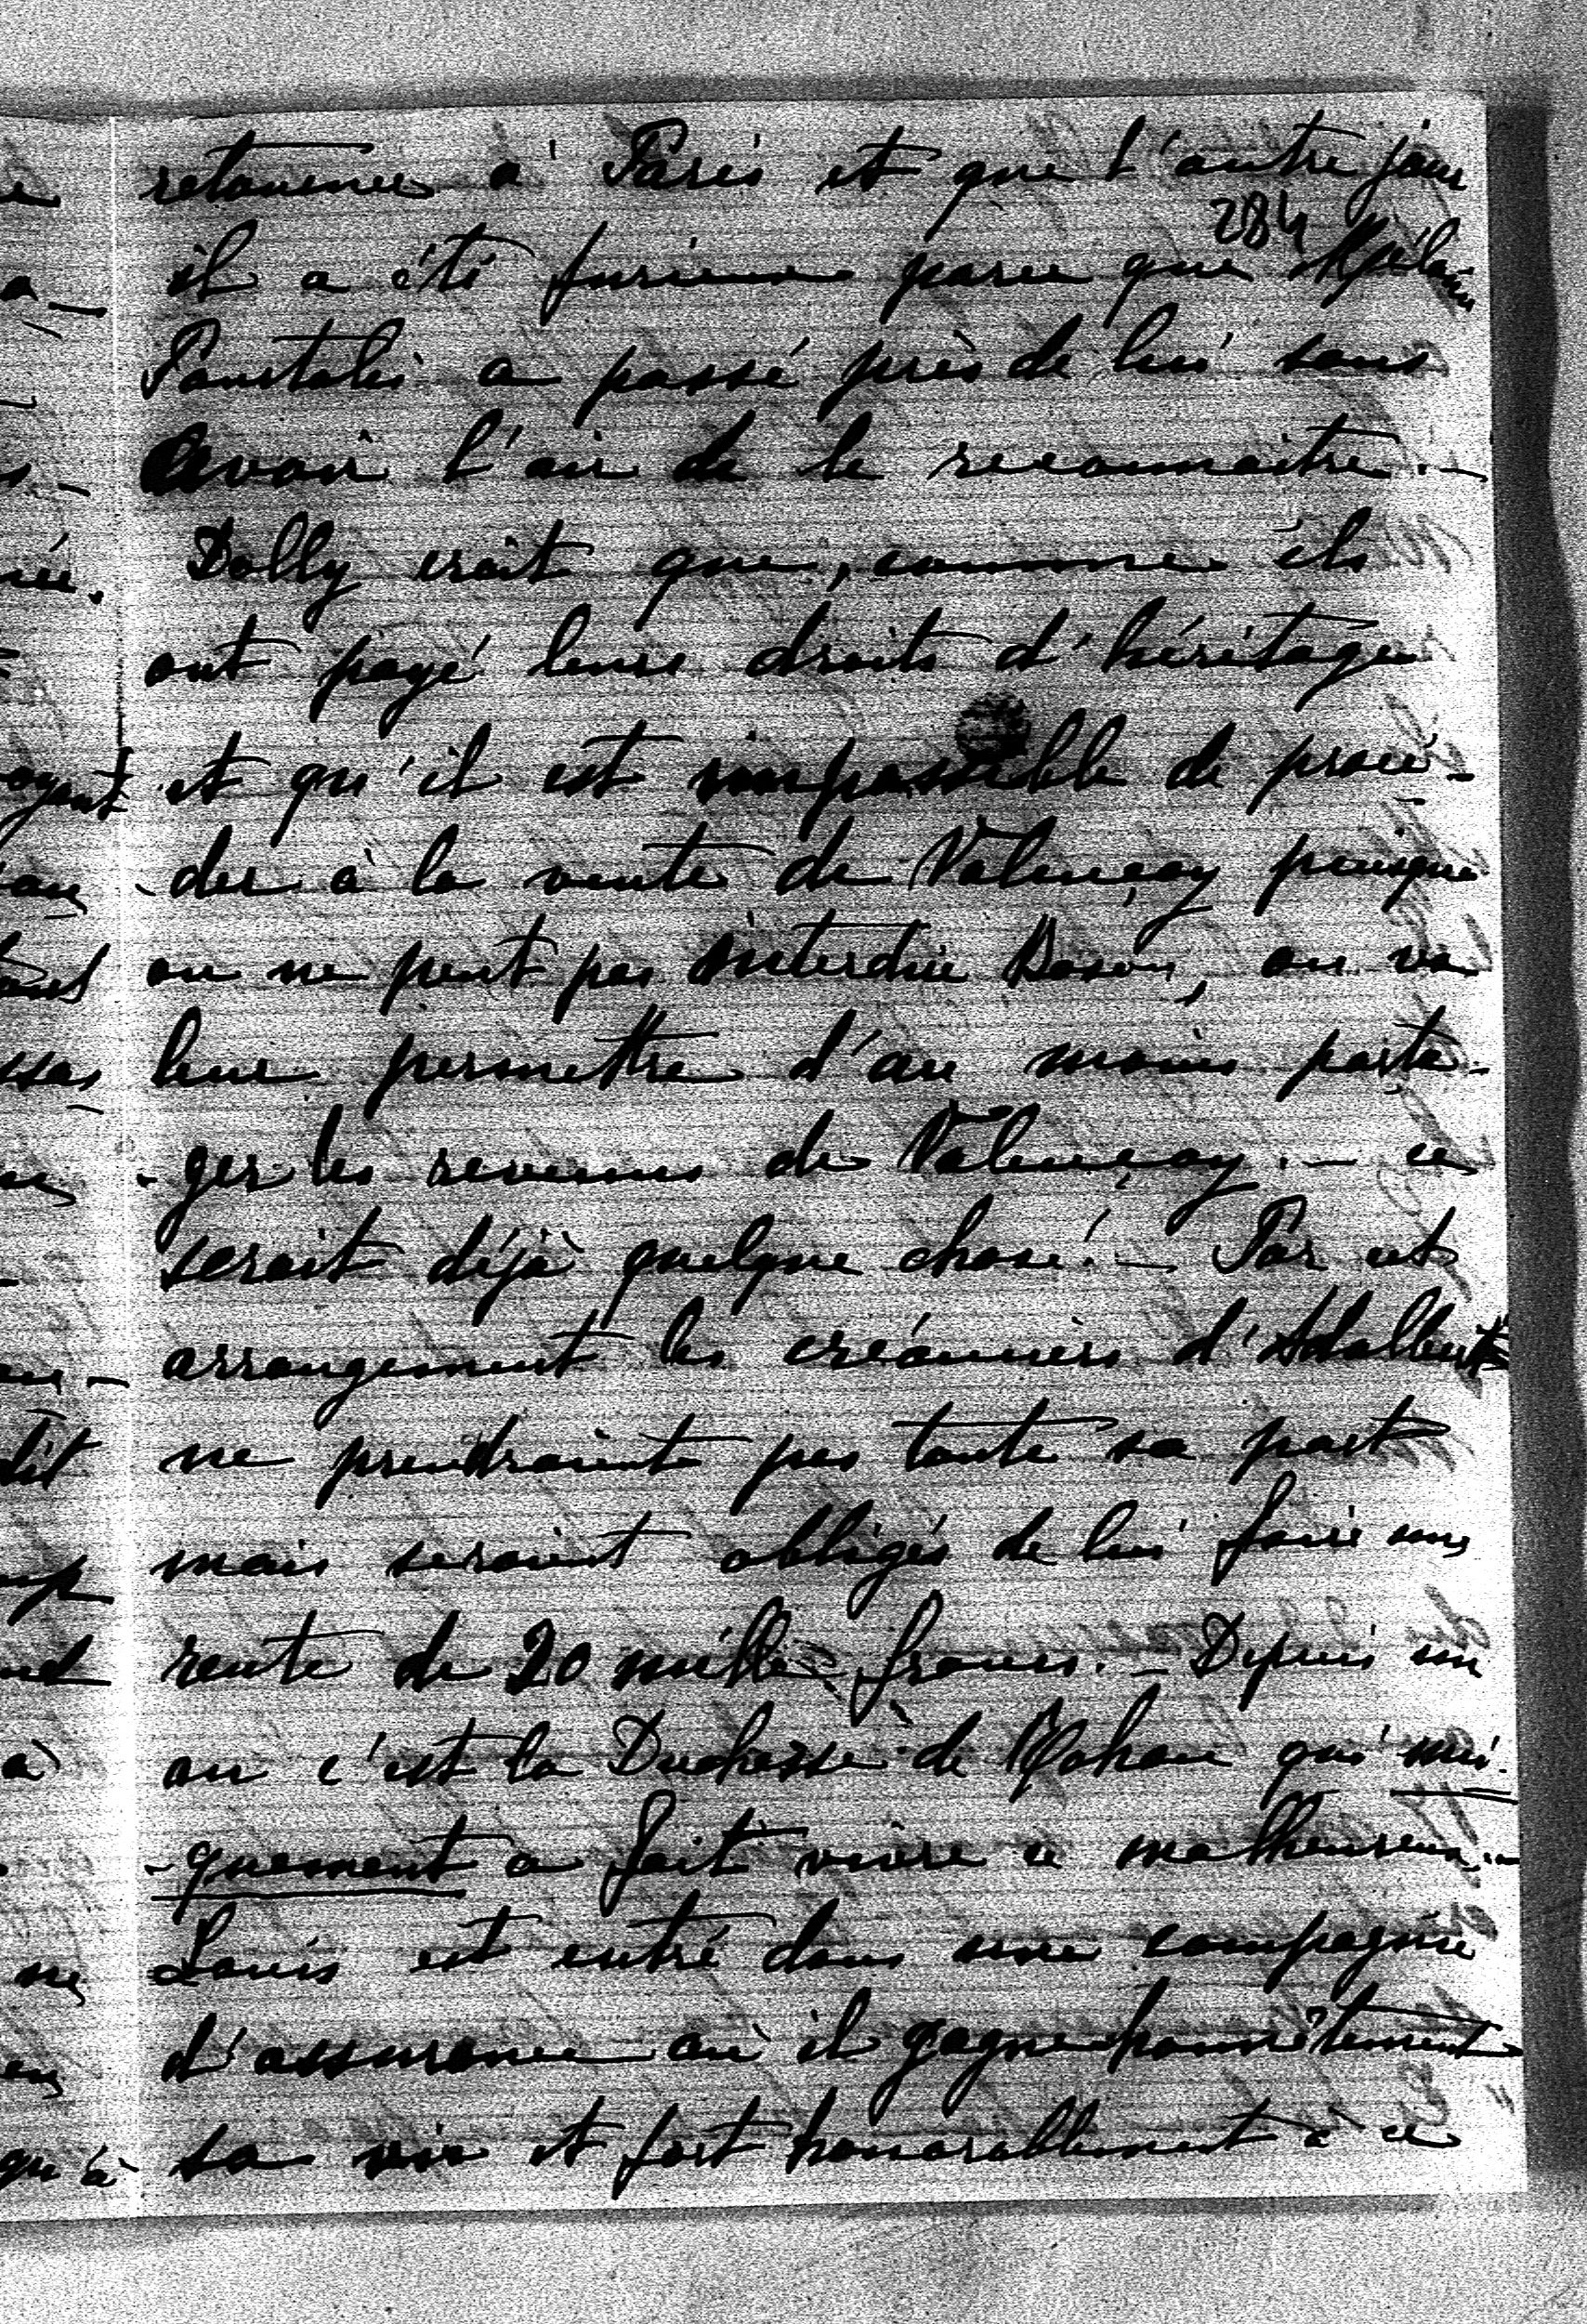 retournée à Paris et que l'autre jour
284
il a été furieux parce que Mélanie
Pourtalès a passé près de lui sans
avoir l'air de le reconnaitre. —
Dolly croit que, comme ils
ont payé leurs droits d'héritage
et qu'il est impossible de procé-
-der à la vente de Valençay puisque
on ne peut pas interdire Boson, on va
leur permettre d'au moins parta-
-ger les revenus de Valençay. — ce
serait déjà quelque chose! — Par cet
arrangement les créanciers d'Adalbert
ne prendraient pas toute sa part
mais seraient obligés de lui faire une
rente de 20 mille francs. — Depuis un
an c'est la Duchesse de Rohan qui uni-
-quement a fait vivre ce malheureux. —
Louis est entré dans une compagnie
d'assurance où il gagne honnêtement
sa vie et fort honorablement à ce